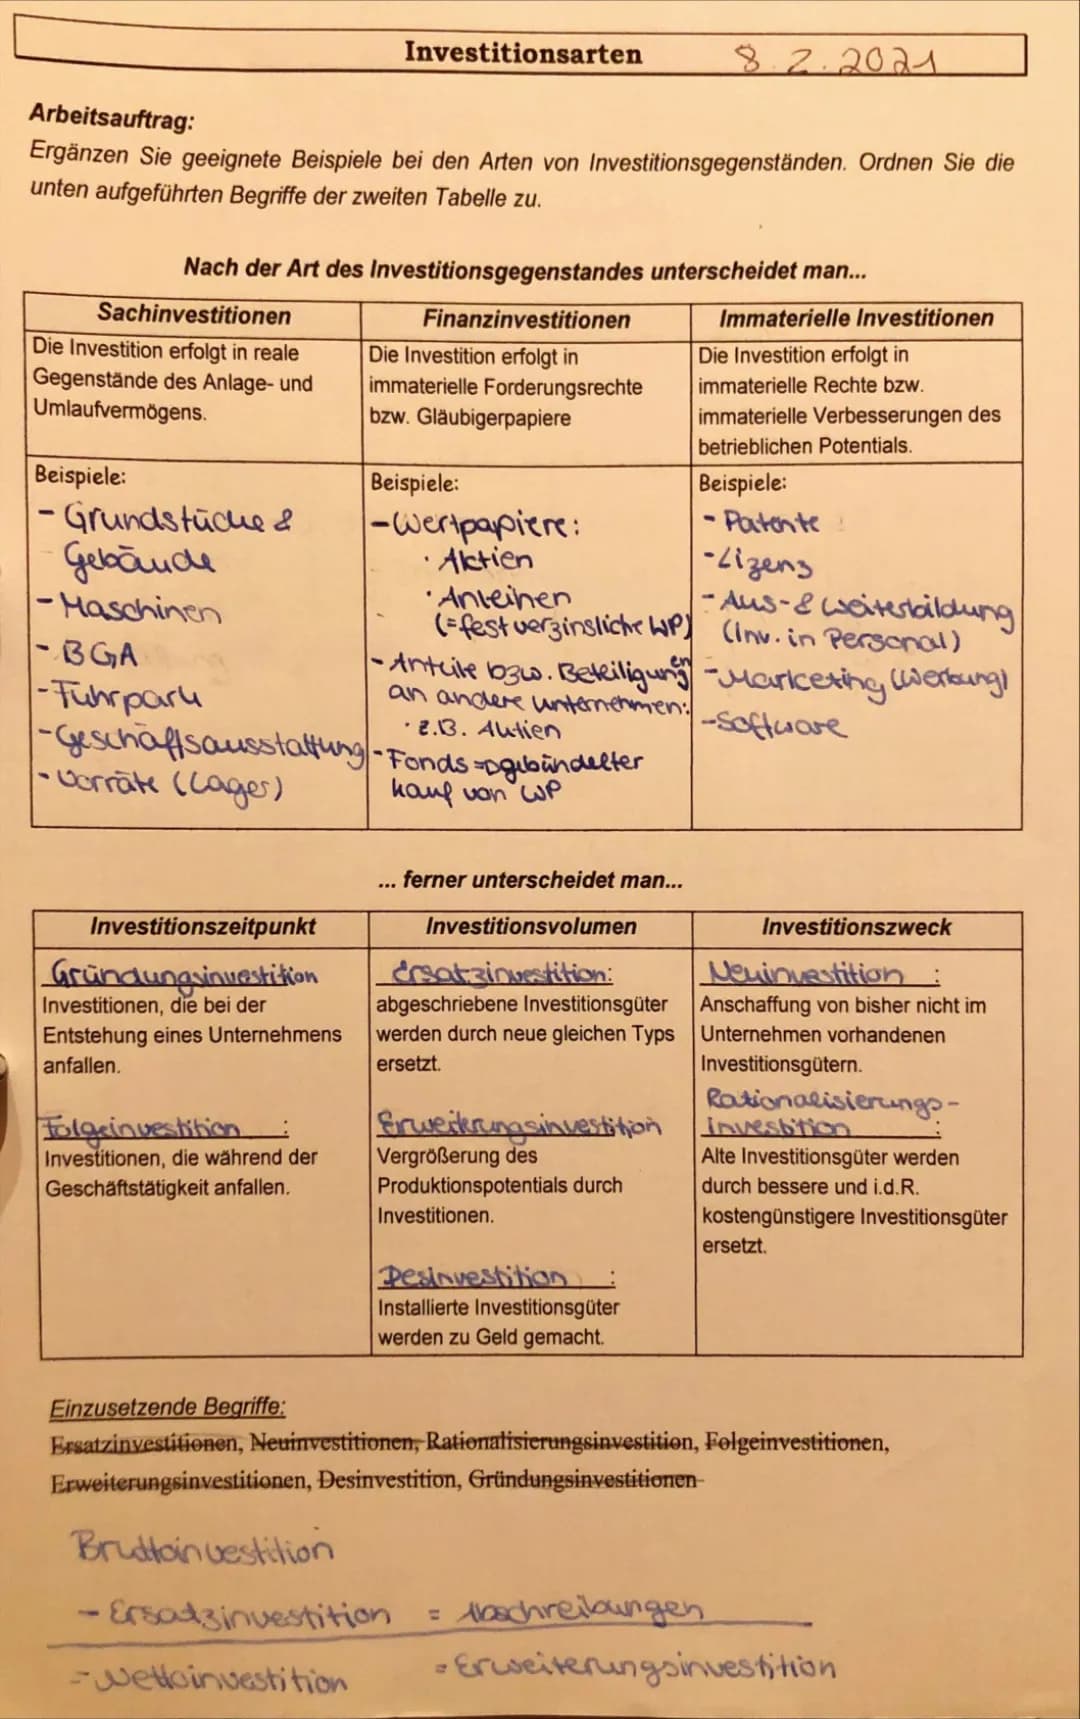 Investitionsarten 8.2.2021
Arbeitsauftrag:
Ergänzen Sie geeignete Beispiele bei den Arten von Investitionsgegenständen. Ordnen Sie die
unten aufgeführten Begriffe der zweiten Tabelle zu.
Nach der Art des Investitionsgegenstandes unterscheidet man...
Sachinvestitionen
Die Investition erfolgt in reale
Gegenstände des Anlage- und
Umlaufvermögens.
Beispiele:
- Grundstücke &
Gebäude
- Maschinen
- BGA
- Fuhrpark
- Geschäftsausstattung
- Vorräte (Lager)
Finanzinvestitionen
Die Investition erfolgt in
immaterielle Forderungsrechte
bzw. Gläubigerpapiere
Beispiele:
- Wertpapiere:
· Aktien
· Anleihen
(= festverzinsliche WP)
- Anteile bzw. Beteiligungen
an andere Unternehmen:
· z.B. Aktien
- Fonds ⇒ gebündelter
Kauf von WP
Immaterielle Investitionen
Die Investition erfolgt in
immaterielle Rechte bzw.
immaterielle Verbesserungen des
betrieblichen Potentials.
Beispiele:
- Patente
- Lizenz
- Aus- & Weiterbildung
(Inv. in Personal)
- Marketing (Werbung)
- Software
... ferner unterscheidet man...
Investitionszeitpunkt
Gründungsinvestition
Investitionen, die bei der
Entstehung eines Unternehmens
anfallen.
Folgeinvestition :
Investitionen, die während der
Geschäftstätigkeit anfallen.
Investitionsvolumen
Ersatzinvestition:
abgeschriebene Investitionsgüter
werden durch neue gleichen Typs
ersetzt.
Erweiterungsinvestition
Vergrößerung des
Produktionspotentials durch
Investitionen.
Desinvestition :
Installierte Investitionsgüter
werden zu Geld gemacht.
Investitionszweck
Neuinvestition :
Anschaffung von bisher nicht im
Unternehmen vorhandenen
Investitionsgütern.
Rationalisierungs-
investition :
Alte Investitionsgüter werden
durch bessere und i.d.R.
kostengünstigere Investitionsgüter
ersetzt.
Einzusetzende Begriffe:
Ersatzinvestitionen, Neuinvestitionen, Rationalisierungsinvestition, Folgeinvestitionen,
Erweiterungsinvestitionen, Desinvestition, Gründungsinvestitionen
Bruttoinvestition
- Ersatzinvestition = Abschreibungen
= Nettoinvestition = Erweiterungsinvestition